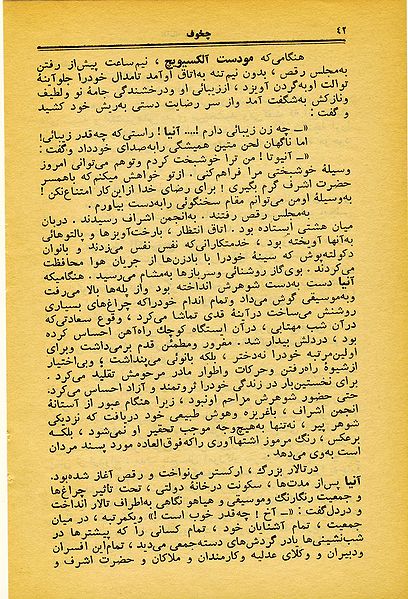 ۴۲
چخوف
هنگامی‌که مودست آلکسیویچ ، نیم‌ساعت پیش‌از رفتن
به‌مجلس رقص ، بدون نیم‌تنه به‌اتاق اوآمد تامدال خودرا جلوآینهٔ
توالت اوبه‌گردن آویزد ، اززیبائی او ودرخشندگی جامهٔ نو ولطیف
ونازکش به‌شگفت آمد واز سر رضایت دستی به‌ریش خود کشید
و گفت :
«ـ چه زن زیبائی دارم !.... آنیا ! راستی‌که چه‌قدر زیبائی!
اما ناگهان لحن متین همیشگی رابه‌صدای خودداد وگفت :
«ـ آنیوتا! من ترا خوشبخت کردم وتوهم می‌توانی امروز
وسیلهٔ خوشبختی مرا فراهم‌کنی . ازتو خواهش میکنم‌که باهمسر
حضرت اشرف گرم بگیری ! برای رضای خدا ازاین‌کار امتناع‌نکن !
به‌وسیلهٔ اومن می‌توانم مقام سخنگوئی رابه‌دست بیاورم .
به‌مجلس رقص رفتند . به‌انجمن اشراف رسیدند . دربان
میان هشتی ایستاده بود . اتاق انتظار ، بارخت‌آویزها و پالتوهائی
به‌آنها آویخته بود ، خدمتکارانی‌که نفس نفس می‌زدند و بانوان
دکولته‌پوش که سینهٔ خودرا با بادزن‌ها از جریان هوا محافظت
می‌کردند . بوی‌گاز روشنائی وسربازها به‌مشام می‌رسید . هنگامیکه
آنیا دست به‌دست شوهرش انداخته بود واز پله‌ها بالا می‌رفت
وبه‌موسیقی گوش می‌داد وتمام اندام خودراکه چراغ‌های بسیاری
روشنش می‌ساخت درآینهٔ قدی تماشا می‌کرد ، وقوع سعادتی‌که
درآن شب مهتابی ، درآن ایستگاه کوچك راه‌آهن احساس کرده
بود ، دردلش بیدار شد . مغرور ومطمئن قدم برمی‌داشت وبرای
اولین‌مرتبه خودرا نه‌دختر ، بلکه بانوئی می‌پنداشت ؛ وبی‌اختیار
ازشیوهٔ راه‌رفتن وحرکات واطوار مادر مرحومش تقلید می‌کرد .
برای نخستین‌بار در زندگی خودرا ثروتمند و آزاد احساس می‌کرد.
حتی حضور شوهرش مزاحم اونبود ، زیرا هنگام عبور از آستانهٔ
انجمن اشراف ، باغریزه وهوش طبیعی خود دریافت که نزدیکی
شوهر پیر ، نه‌تنها به‌هیچ‌وجه موجب تحقیر او نمی‌شود ، بلکه
برعکس ، رنگ مرموز اشتهاآوری راکه‌فوق‌العاده مورد پسند مردان
است به‌وی می‌دهد .
درتالار بزرگ ، ارکستر می‌نواخت و رقص آغاز شده‌بود.
آنیا پس‌از مدت‌ها ، سکونت درخانهٔ دولتی ، تحت تاثیر چراغ‌ها
و جمعیت رنگارنگ وموسیقی و هیاهو نگاهی به‌اطراف تالار انداخت
و دردل‌گفت : «ـ آخ ! چه‌قدر خوب است !» ویکمرتبه ، در میان
جمعیت ، تمام آشنایان خود ، تمام کسانی را که پیشترها در
شب‌نشینی‌ها یادر گردش‌های دسته‌جمعی می‌دید ، تمام‌این افسران
ودبیران و وکلای عدلیه وکارمندان و ملاکان و حضرت اشرف و